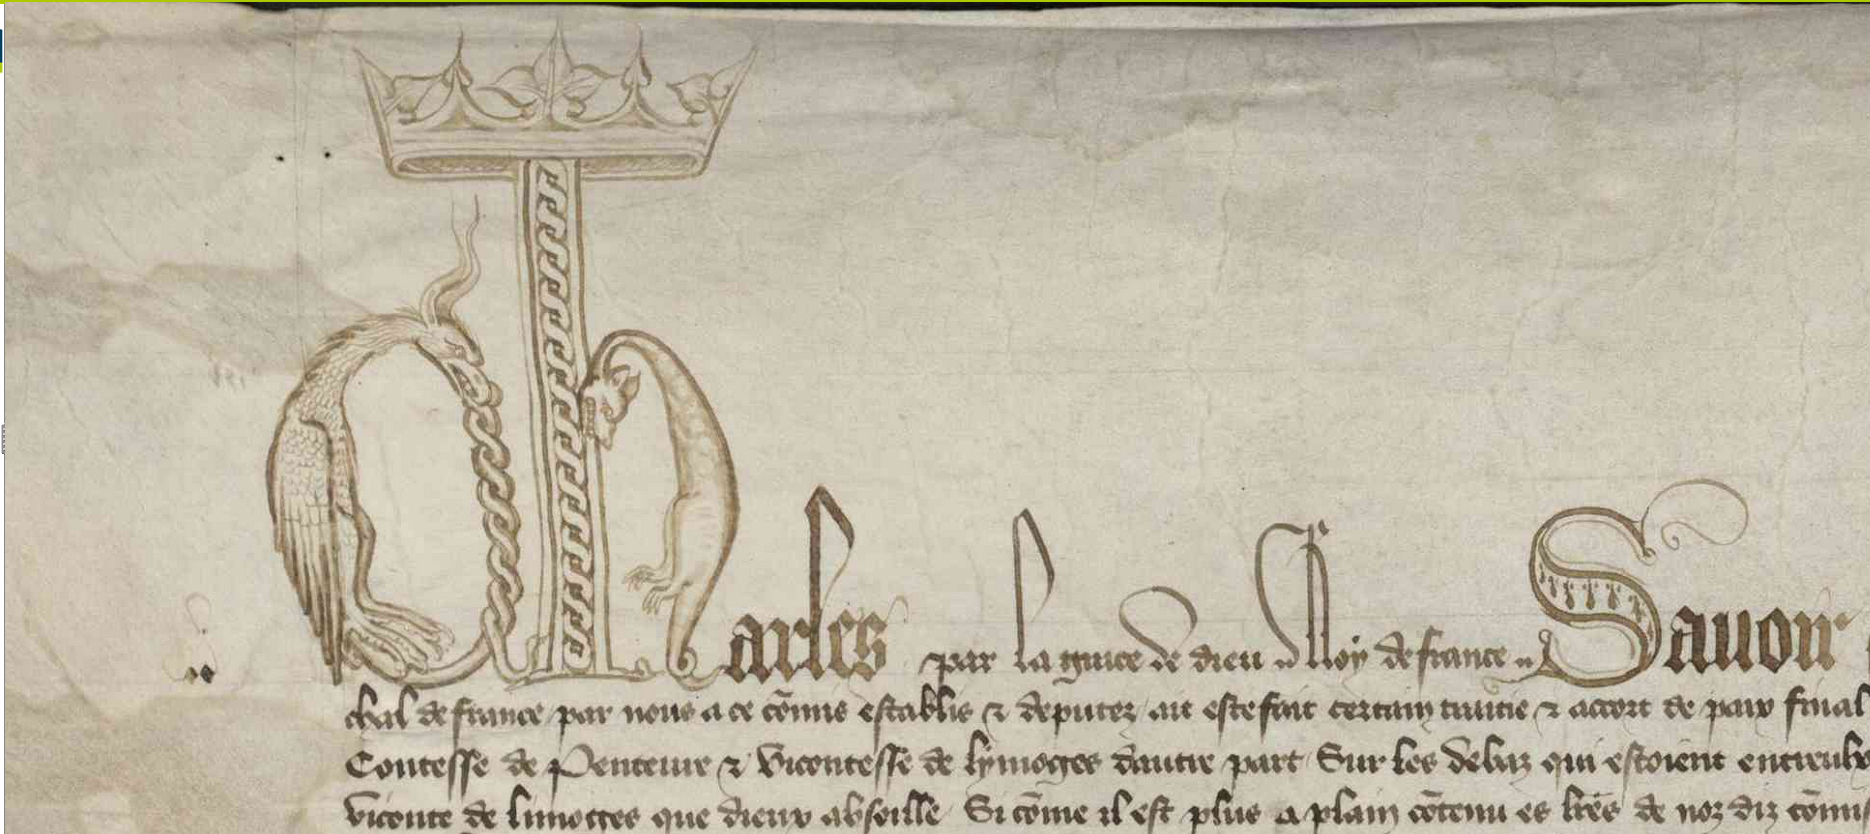 Charles par la grace de dieu Roy de france Sauoir
chal de france par nous a ce cōmis establis & deputez ait este fait certain traitie & accort de paix final
Contesse de Penteure & vicontesse de lymoges dautre part Sur les debaz qui estoient entre
viconte de limoges que dieux absoille Si cōme il est plus a plain cōtenu es lr̄es de noz diz cōmis